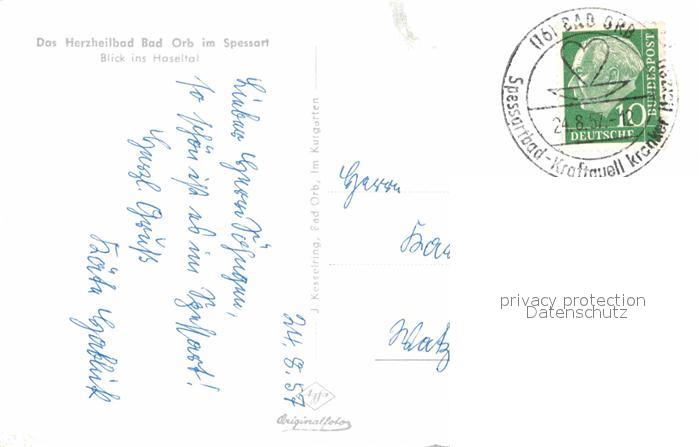 Das Herzheilbad Bad Orb im Spessart
Blick ins Haseltal
Lieber Herr
so schön ist es im Spessart!
Herzl. Gruß
Käthe
24.8.57
J. Kesselring, Bad Orb, Im Kurgarten
Originalfoto
Herrn
(16) BAD ORB
24.8.57.-12
Spessartbad-Kraftquell kranker Herzen
10
DEUTSCHE
BUNDESPOST
privacy protection
Datenschutz